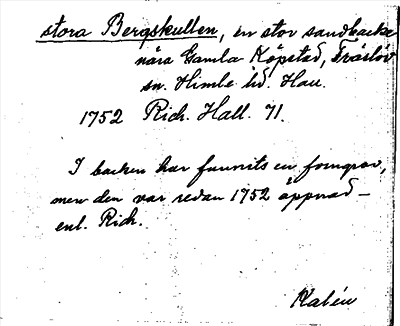 stora Bergskullen, en stor sandbacke
nära Gamla Köpstad, Träslöv
sn. Himle hd. Hall.
1752 Rich. Hall. 71.
I backen har funnits en forngrav,
men den var redan 1752 öppnad –
enl. Rich.
Kalén